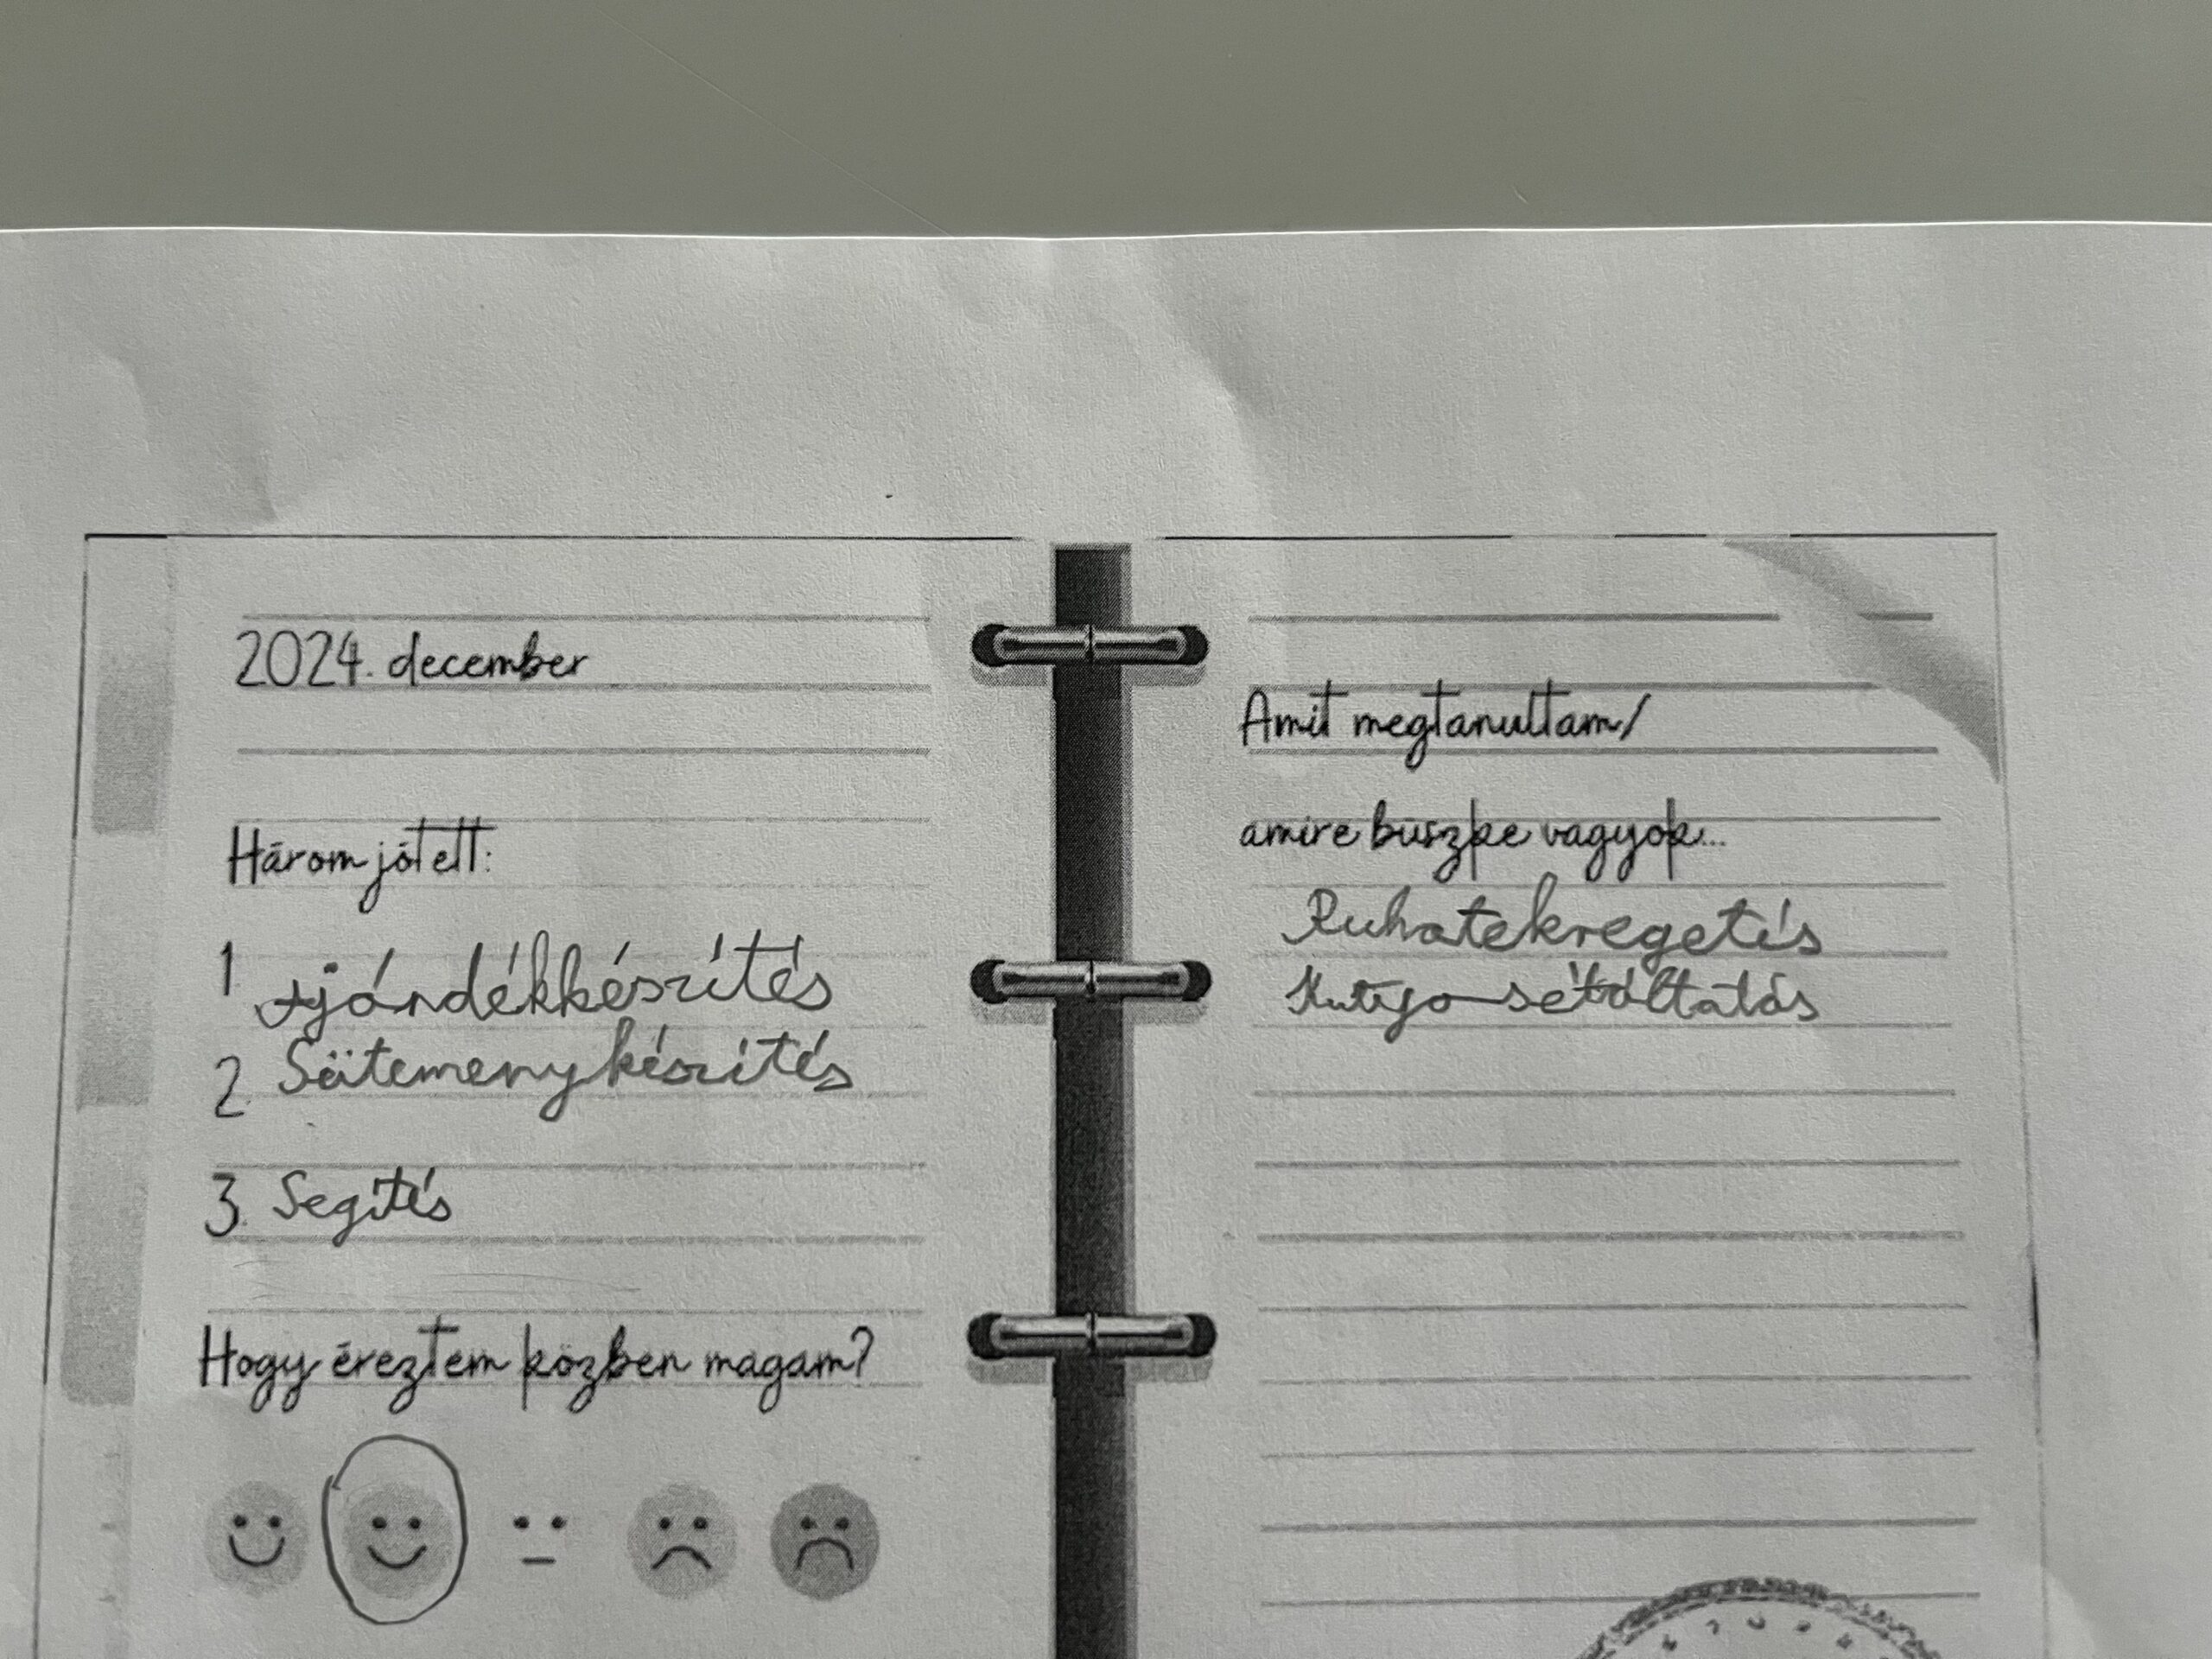 2024. december
Három jótett:
1 Ajándékkészítés
2. Sütemenykészítés
3. Segítés
Hogy éreztem közben magam?
Amit megtanultam/
amire büszke vagyok...
Ruhatekregetés
Kutya sétáltatás